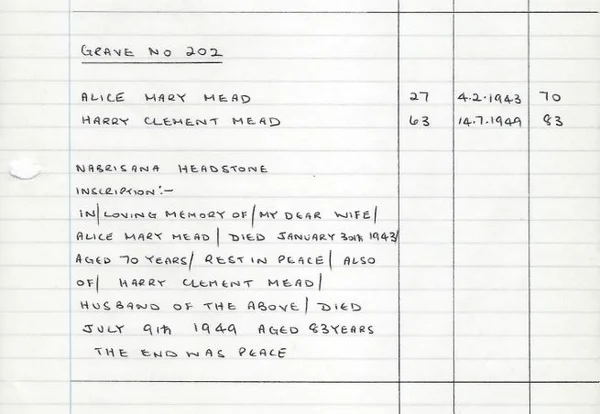 GRAVE NO 202
ALICE MARY MEAD 27 4.2.1943 70
HARRY CLEMENT MEAD 63 14.7.1949 83
NABRISANA HEADSTONE
INSCRIPTION:-
IN/LOVING MEMORY OF/MY DEAR WIFE/
ALICE MARY MEAD/ DIED JANUARY 30th 1943/
AGED 70 YEARS/ REST IN PEACE/ ALSO
OF/ HARRY CLEMENT MEAD/
HUSBAND OF THE ABOVE/ DIED
JULY 9th 1949 AGED 83 YEARS
THE END WAS PEACE